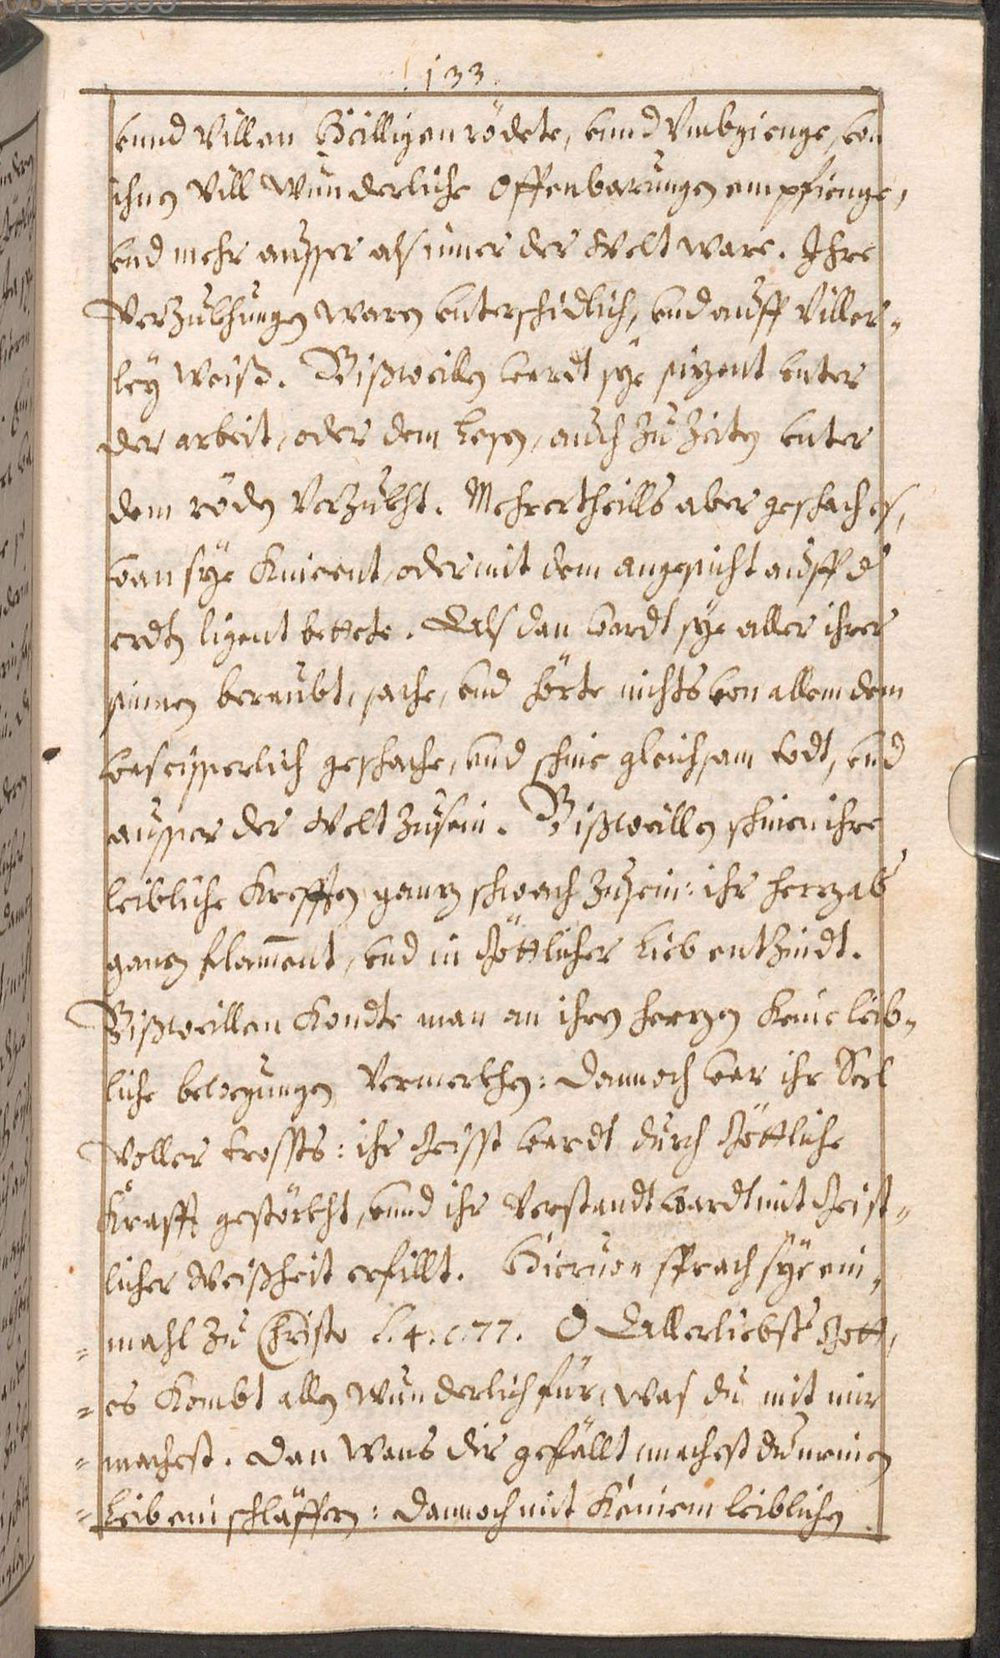 133
vnnd Villen Heilligen rödete, vnnd Vmbgienge, von
ihnen Vill Wunderliche Offenbarungen empfienge,
vnd mehr ausser als inner der Welt ware. Ihre
Verzukhungen waren vnterschidlich, vnd auff Viller-
ley Weiß. Bißweillen wardt sye sizent vnter
der arbeit, oder dem Lesen, auch zu Zeiten vnter
dem röden Verzukht. Mehrertheills aber geschach es,
wan sye Knieent, oder mit dem angesicht auff d
erdten ligent bettete. Alls dan wardt sye aller ihrer
sinnen beraubt, sache, vnd hörte nichts von allem dem
was eisserlich geschache, vnd schine gleichsam todt, vnd
ausser der Welt zusein. Bißweillen schinen ihre
leibliche Krefften ganz schwach zusein: ihr herz ab
ganz flam̄ent, vnd in Göttlicher Lieb entzindt.
Bißweillen Kondte man an ihren herzen Keine leib-
liche bewegungen Vermerkhen: dannoch war ihr Seel
Voller trossts: ihr Geisst wardt durch Göttliche
Krafft gestörkht, vnnd ihr Verstandt wardt mit Geist-
licher Weißheit erfillt. Hieruon sprach sye ein-
mahl zu Christo l. 4. c. 77. O Allerliebster Gott,
es Kombt allen Wunderlich für, was du mit mir
machest. dan wans dir gefällt machest du meinen
Leib einschläffen: dannoch mit Keinem leiblichen